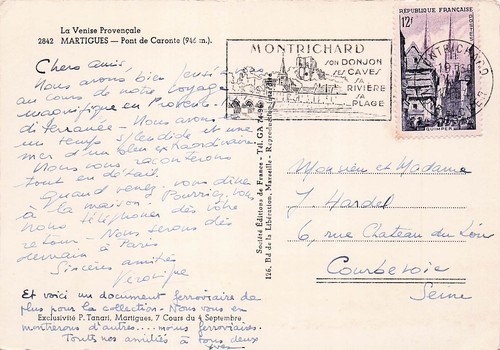 La Venise Provençale
2842 MARTIGUES — Pont de Caronte (946 m.)
Chers amis,
Nous avons bien pensé à
au cours de notre voyage
magnifique en Provence.
diterranée - Nous avons
un temps splendide et une
mer d'un bleu extraordinaire.
Nous vous raconterons
tout en détail.
Quand venez-vous dîner
à la maison. Pourriez-vous
nous téléphoner dès votre
retour - Nous serons dès
demain à Paris
Sincères amitiés
Et voici un document ferroviaire de
plus pour la collection - Nous vous en
montrerons d'autres... moins ferroviaires.
Exclusivité P. Tanari, Martigues, 7 Cours du 4 Septembre
Toutes nos amitiés à tous deux
Yves
Société Éditions de France - Tél. GA 74-96
126, Bd de la Libération, Marseille - Reproduction interdite
MONTRICHARD
SON DONJON
SES CAVES
SA
RIVIÈRE
SA
PLAGE
RÉPUBLIQUE FRANÇAISE
12F
QUIMPER
MONTRICHARD
Monsieur et Madame
J. Hardel
6, rue Chateau du Loir
Courbevoie
Seine